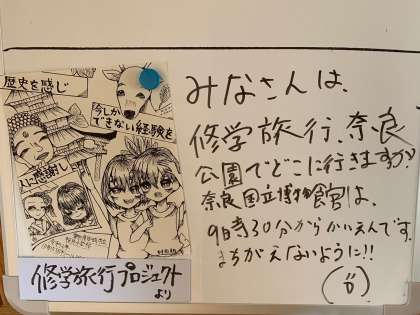 歴史を感じ
今しか
できない経験を
人に感謝し
修学旅行プロジェクト
より
みなさんは、
修学旅行、奈良
公園でどこに行きますか
奈良国立博物館は、
9時30分からかいえんです。
まちがえないように!!